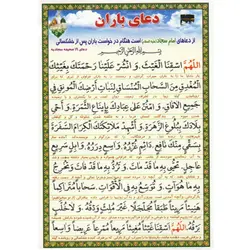 دعای باران
از دعاهای امام سجاد است هنگام درخواست باران پس از خشکسالی
دعای ۱۹ صحیفه سجادیه
بِسْمِ اللهِ الرَّحْمنِ الرَّحِیمِ
اَللّهُمَّ اسْقِنَا الْغَیْثَ وَ انْشُرْ عَلَیْنَا رَحْمَتَكَ بِغَیْثِكَ
الْمُغْدِقِ مِنَ السَّحَابِ الْمُنْسَاقِ لِنَبَاتِ أَرْضِكَ الْمُونِقِ فِی
جَمِیعِ الْآفَاقِ وَ امْنُنْ عَلَی عِبَادِكَ بِإِینَاعِ الثَّمَرَةِ وَ أَحْیِ
بِلَادَكَ بِبُلُوغِ الزَّهَرَةِ وَ أَشْهِدْ مَلَائِكَتَكَ الْكِرَامَ السَّفَرَةَ
بِسَقْیٍ مِنْكَ نَافِعٍ دَائِمٍ غُزْرُهُ وَاسِعٍ دِرَرُهُ وَابِلٍ سَرِیعٍ
عَاجِلٍ تُحْیِی بِهِ مَا قَدْ مَاتَ وَ تَرُدُّ بِهِ مَا قَدْ فَاتَ وَ تُخْرِجُ
بِهِ مَا هُوَ آتٍ وَ تُوَسِّعُ بِهِ فِی الْأَقْوَاتِ سَحَابًا مُتَرَاكِمًا
هَنِیئًا مَرِیئًا طَبَقًا مُجَلْجَلًا غَیْرَ مُلِثٍّ وَدْقُهُ وَ لَا خُلَّبٍ